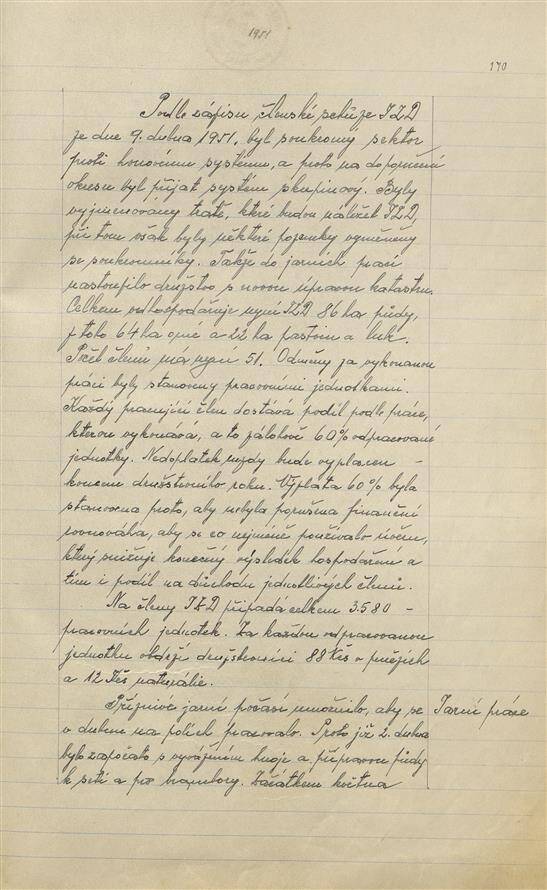 1951
170
Podle zápisu členské schůze JZD
ze dne 9. dubna 1951, byl soukromý sektor
proti honovému systému, a proto na doporučení
okresu byl přijat systém skupinový. Byly
vyjmenovány tratě, které budou náležet JZD,
při tom však byly některé pozemky vyměněny
se soukromníky. Takže do jarních prací
nastoupilo družstvo s novou úpravou katastru.
Celkem obhospodařuje nyní JZD 86 ha půdy,
z toho 64 ha orné a 22 ha pastvin a luk.
Počet členů má nyní 51. Odměny za vykonanou
práci byly stanoveny pracovními jednotkami.
Každý pracující člen dostává podíl podle práce,
kterou vykonává, a to zálohově 60% odpracované
jednotky. Nedoplatek mzdy bude vyplacen -
koncem družstevního roku. Výplata 60% byla
stanovena proto, aby nebyla porušena finanční
rovnováha, aby se co nejméně používalo úvěru,
který snižuje konečný výsledek hospodaření a
tím i podíl na důchodu jednotlivých členů.
Na členy JZD připadá celkem 3580 -
pracovních jednotek. Za každou odpracovanou
jednotku obdrží družstevníci 88 Kčs v penězích
a 12 Kčs naturálie.
Příznivé jarní počasí umožnilo, aby se Jarní práce
v dubnu na polích pracovalo. Proto již 2. dubna
bylo započato s vyvážením hnoje a přípravou půdy
k setí a pro brambory. Začátkem května